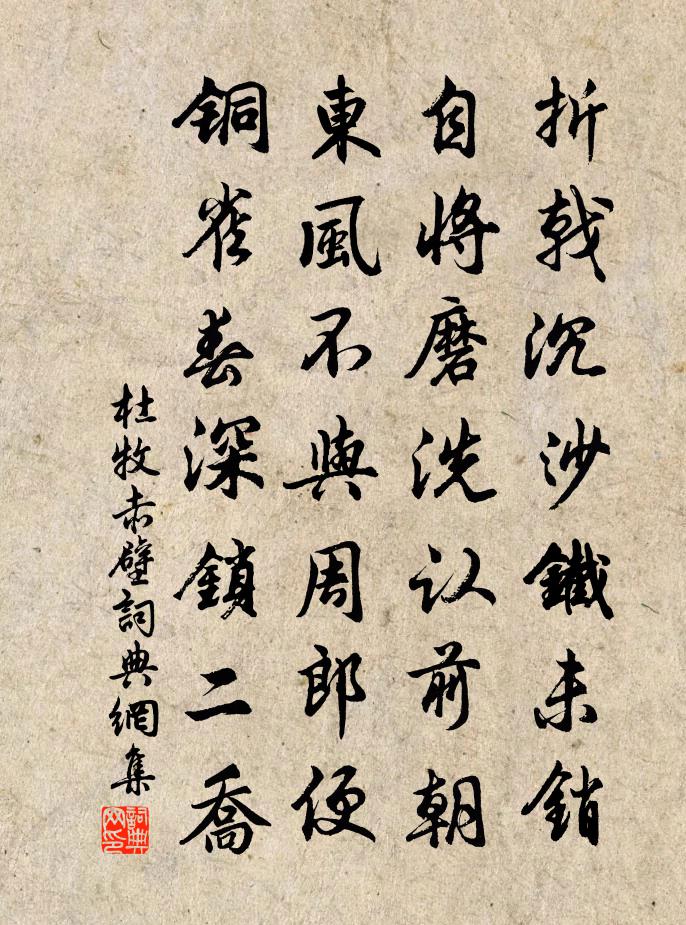 折戟沉沙鐵未銷
自將磨洗认前朝
東風不與周郎便
銅雀春深鎖二喬
杜牧赤壁詞典網集
詞典网印